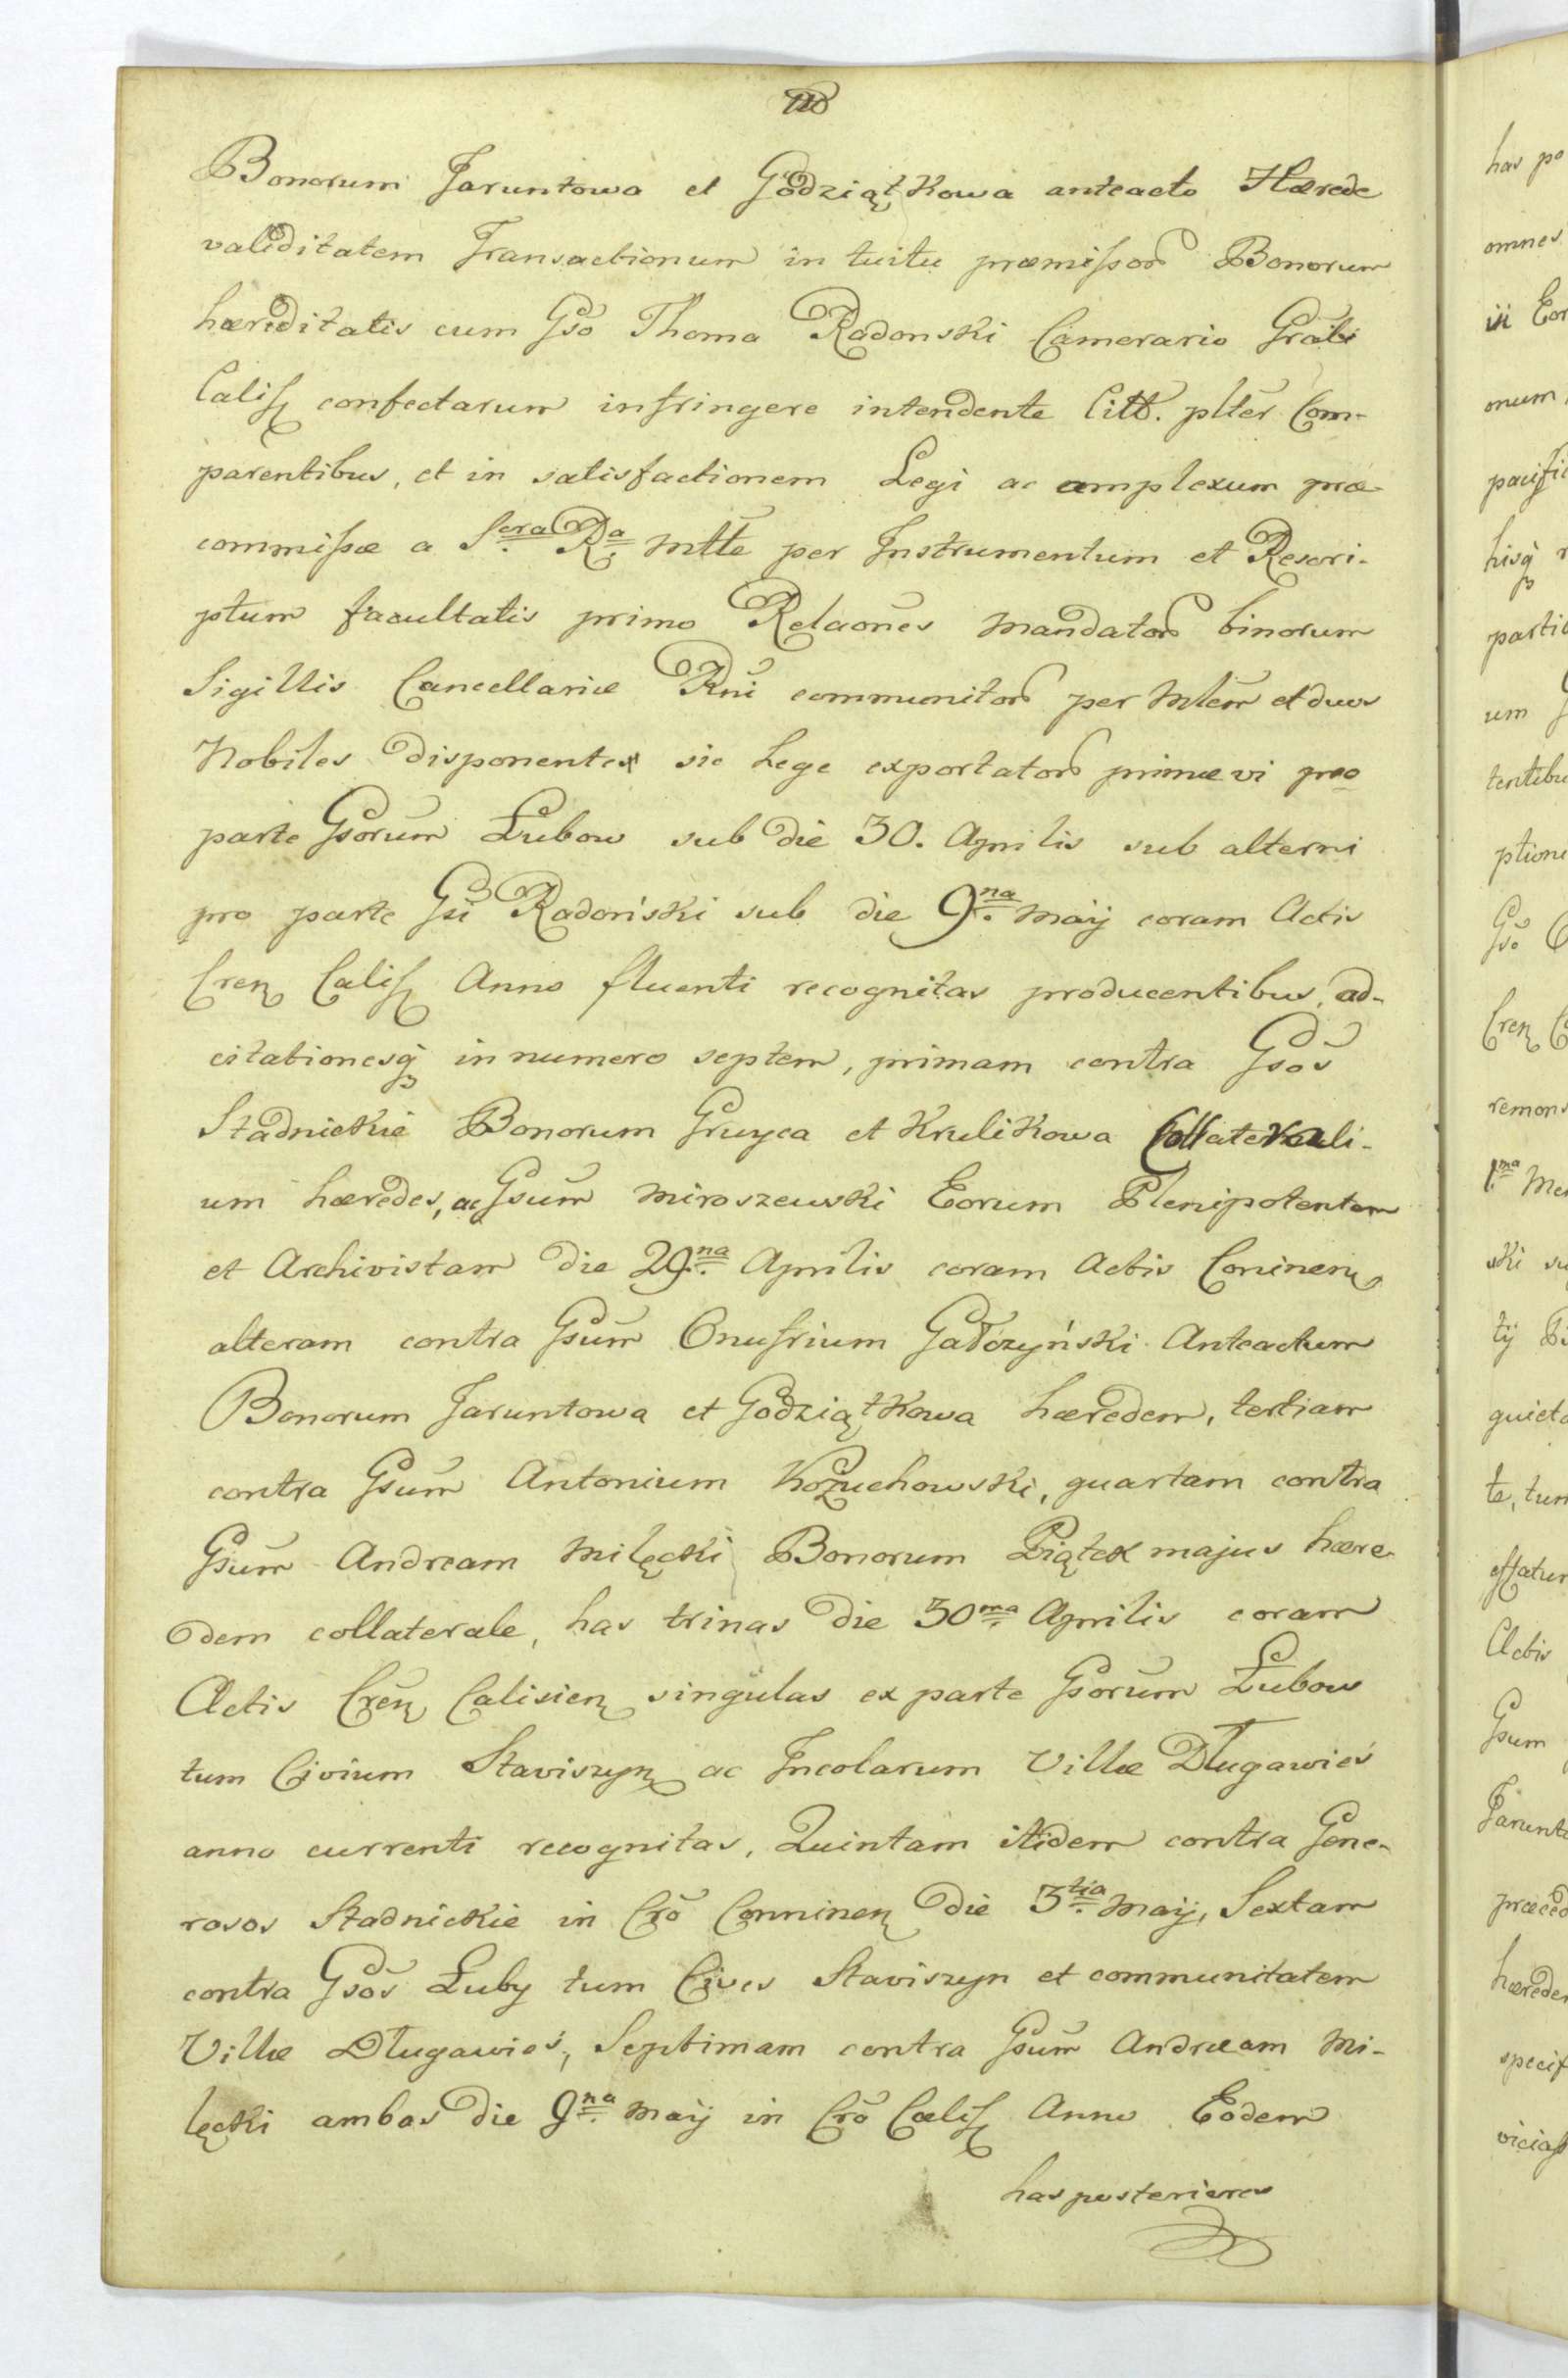 Bonorum Jaruntowa et Godziątkowa anteacto Hærede
validitatem Transactionum in tuitu præmissor Bonorum
hæreditatis cum Gso Thoma Radonski Camerario Grãli
Calis confectarum infringere intendente Citt. pltẽr Com-
parentibus, et in satisfactionem Legi ac amplexum præ-
commissæ a S.era R.a Mtte per Instrumentum et Rescri-
ptum facultatis primo Relaões Mandator binorum
Sigillis Cancellariæ Rñi communitor per Mlem et duos
Nobiles disponente sic Lege exportator primævi pro
parte Gsorum Łubow sub die 30. Aprilis sub alterni
pro parte Gsi Radoński sub die 9.na Maÿ coram Actis
Cren Calis Anno fluenti recognitas producentibus, ad-
citationesq in numero septem, primam contra Gsos
Stadnickie Bonorum Gruyca et Krulikowa Collaterali-
um hæredes, ac Gsum Miroszewski Eorum Plenipotentem
et Archivistam die 29.na Aprilis coram Actis Coninen
alteram contra Gsum Onufrium Gałczyński Anteactum
Bonorum Jaruntowa et Godziątkowa hæredem, tertiam
contra Gsum Antonium Kożuchowski, quartam contra
Gsum Andream Milęcki Bonorum Piątek majus hære-
dem collaterale, has trinas die 30.ma Aprilis coram
Actis Cren Calisien singulas ex parte Gsorum Łubow
tum Civium Staviszyn ac Incolarum Villæ Długawieś
anno currenti recognitas, Quintam itidem contra Gene-
rosos Stadnickie in Cro Conninen die 3.tia Maÿ, Sextam
contra Gsos Łuby tum Cives Staviszyn et communitatem
Villæ Długawieś, Septimam contra Gsum Andræam Mi-
lęcki ambas die 9.na Maÿ in Cro Calis Anno Eodem
has posteriores
has po
omnes
onum
pacifi
hisq
partic
um
tentibu
ptione
Gso
Cren
remons
1.ma
ski
quiet
te, tum
Actis
Gsum
Jarunto
præced
hæredem
specif